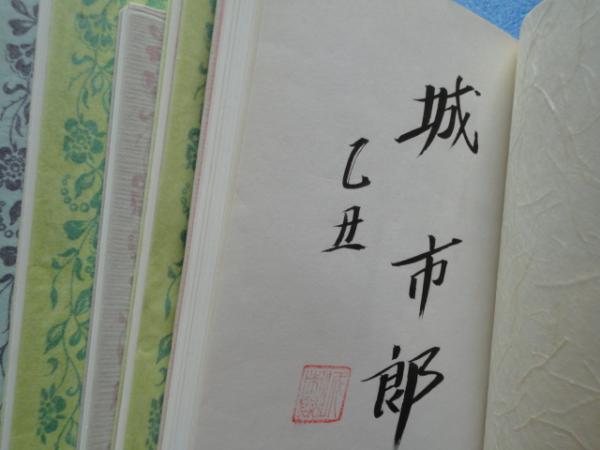 城市郎
乙丑